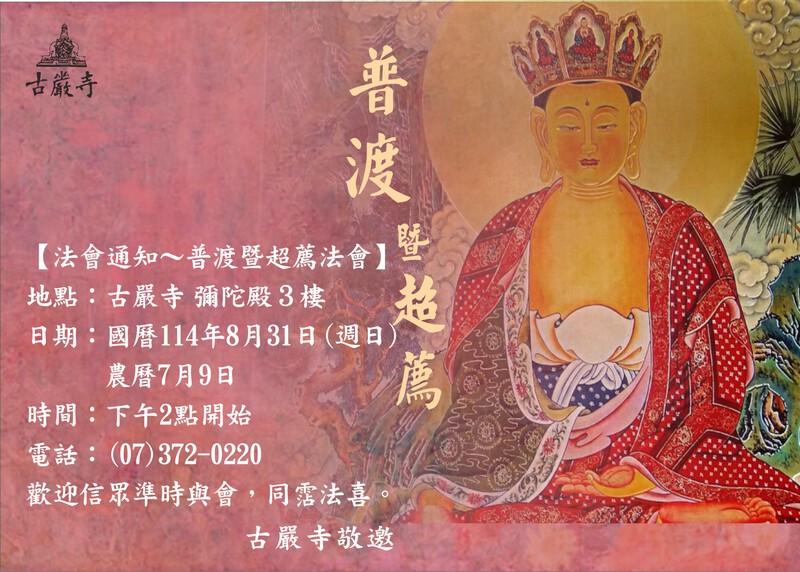 古嚴寺
普渡暨超薦
【法會通知～普渡暨超薦法會】
地點：古嚴寺 彌陀殿3樓
日期：國曆114年8月31日(週日)
農曆7月9日
時間：下午2點開始
電話：(07)372-0220
歡迎信眾準時與會，同霑法喜。
古嚴寺敬邀